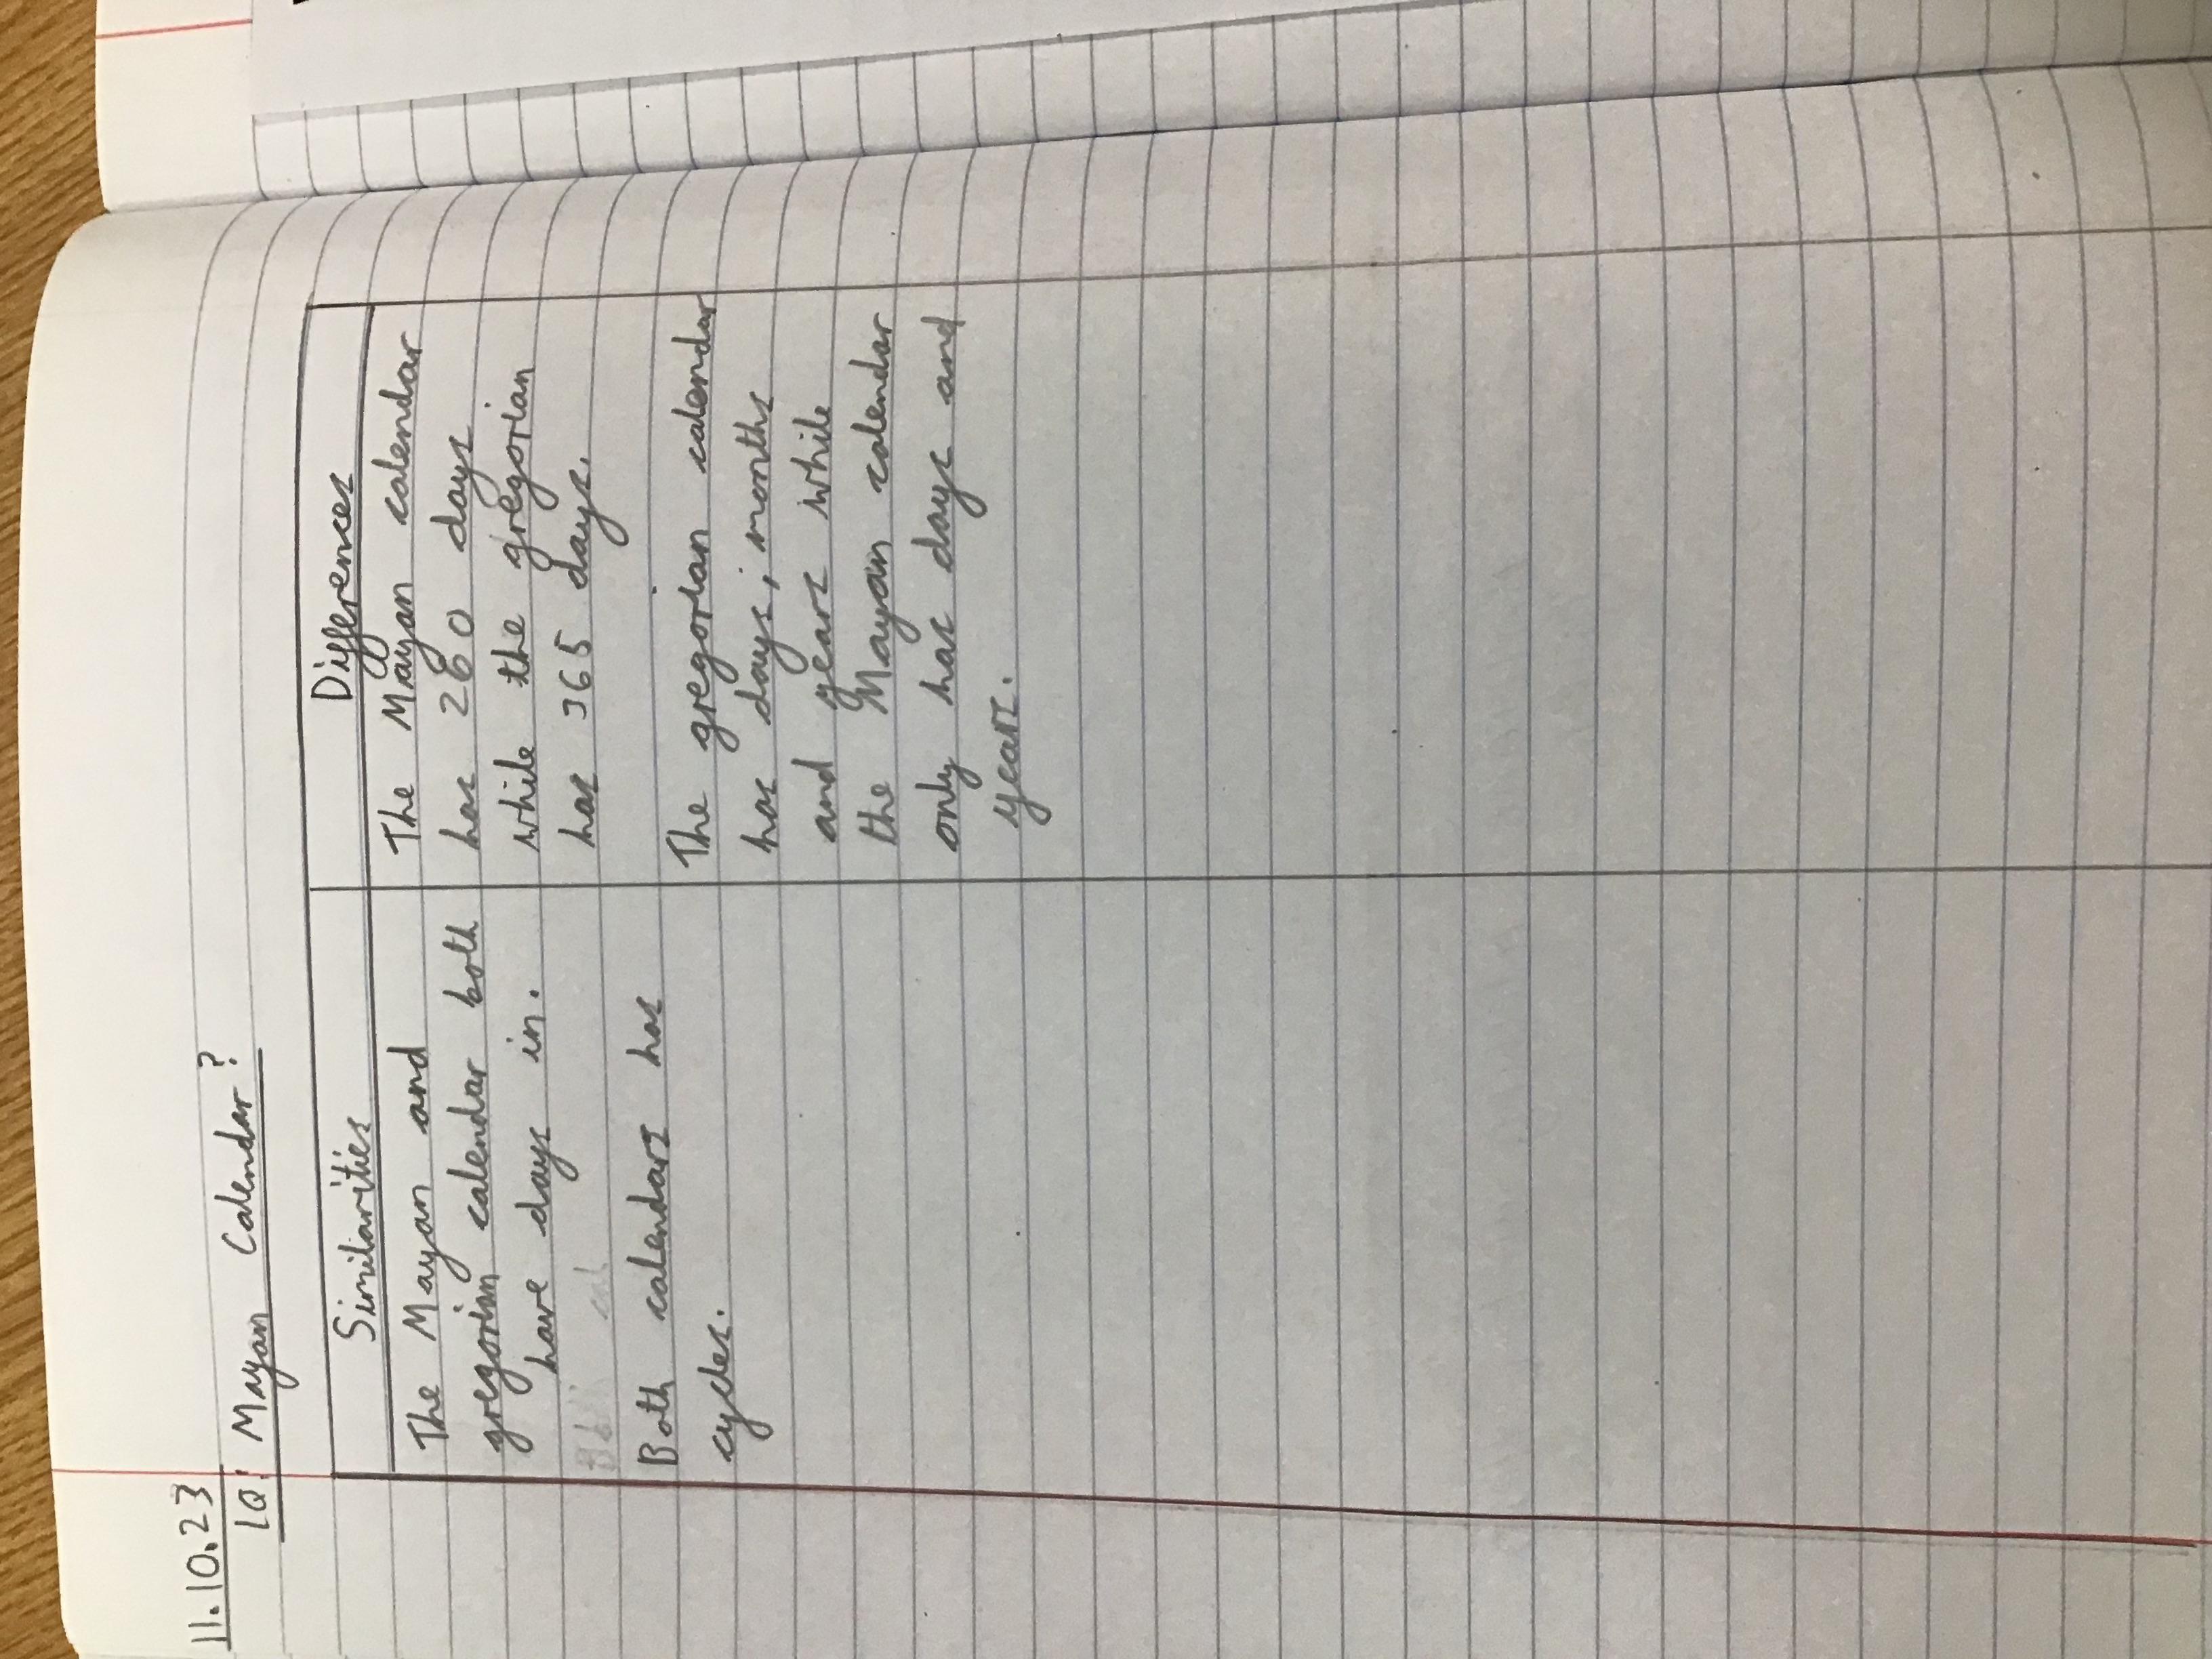 11.10.23
LQ: Mayan Calendar?
Similarities
The Mayan and
gregorian calendar both
have days in.
Both calendars has
cycles.
Differences
The Mayan calendar
has 260 days
while the gregorian
has 365 days.
The gregorian calendar
has days, months
and years while
the Mayan calendar
only has days and
years.